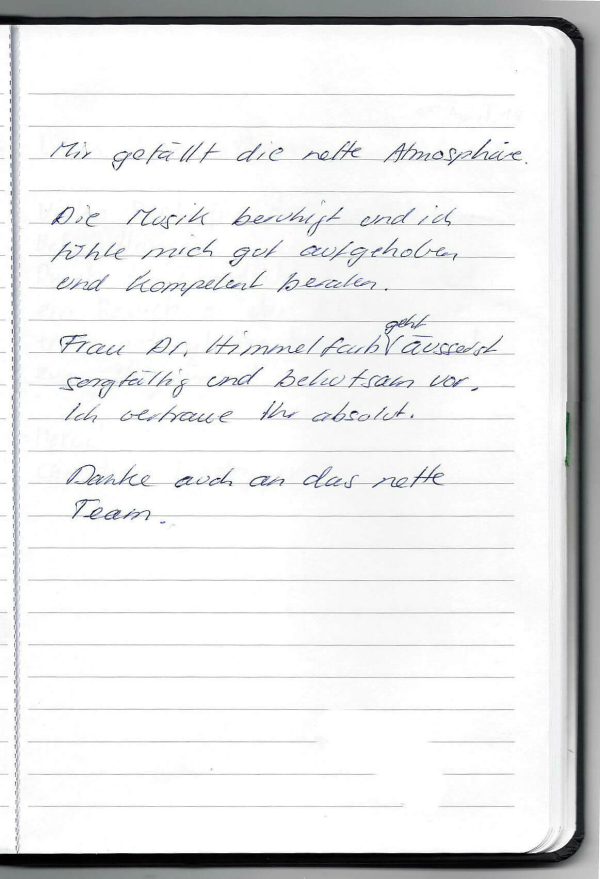 Mir gefällt die nette Atmosphäre.
Die Musik beruhigt und ich
fühle mich gut aufgehoben
und kompetent beraten.
geht
Frau Dr. Himmelfarb äusserst
sorgfältig und behutsam vor.
Ich vertraue Ihr absolut.
Danke auch an das nette
Team.